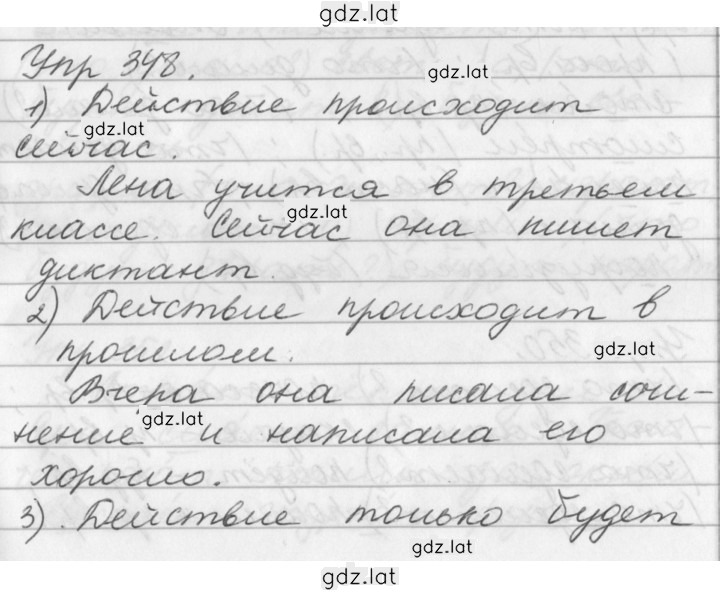 gdz.lat
Упр 348.
gdz.lat
1) Действие происходит
gdz.lat
сейчас.
Лена учится в третьем
gdz.lat
классе. Сейчас она пишет
диктант.
2) Действие происходит в
прошлом.
gdz.lat
Вчера она писала сочи-
gdz.lat
нение и написала его
хорошо.
3). Действие только будет
gdz.lat
gdz.lat